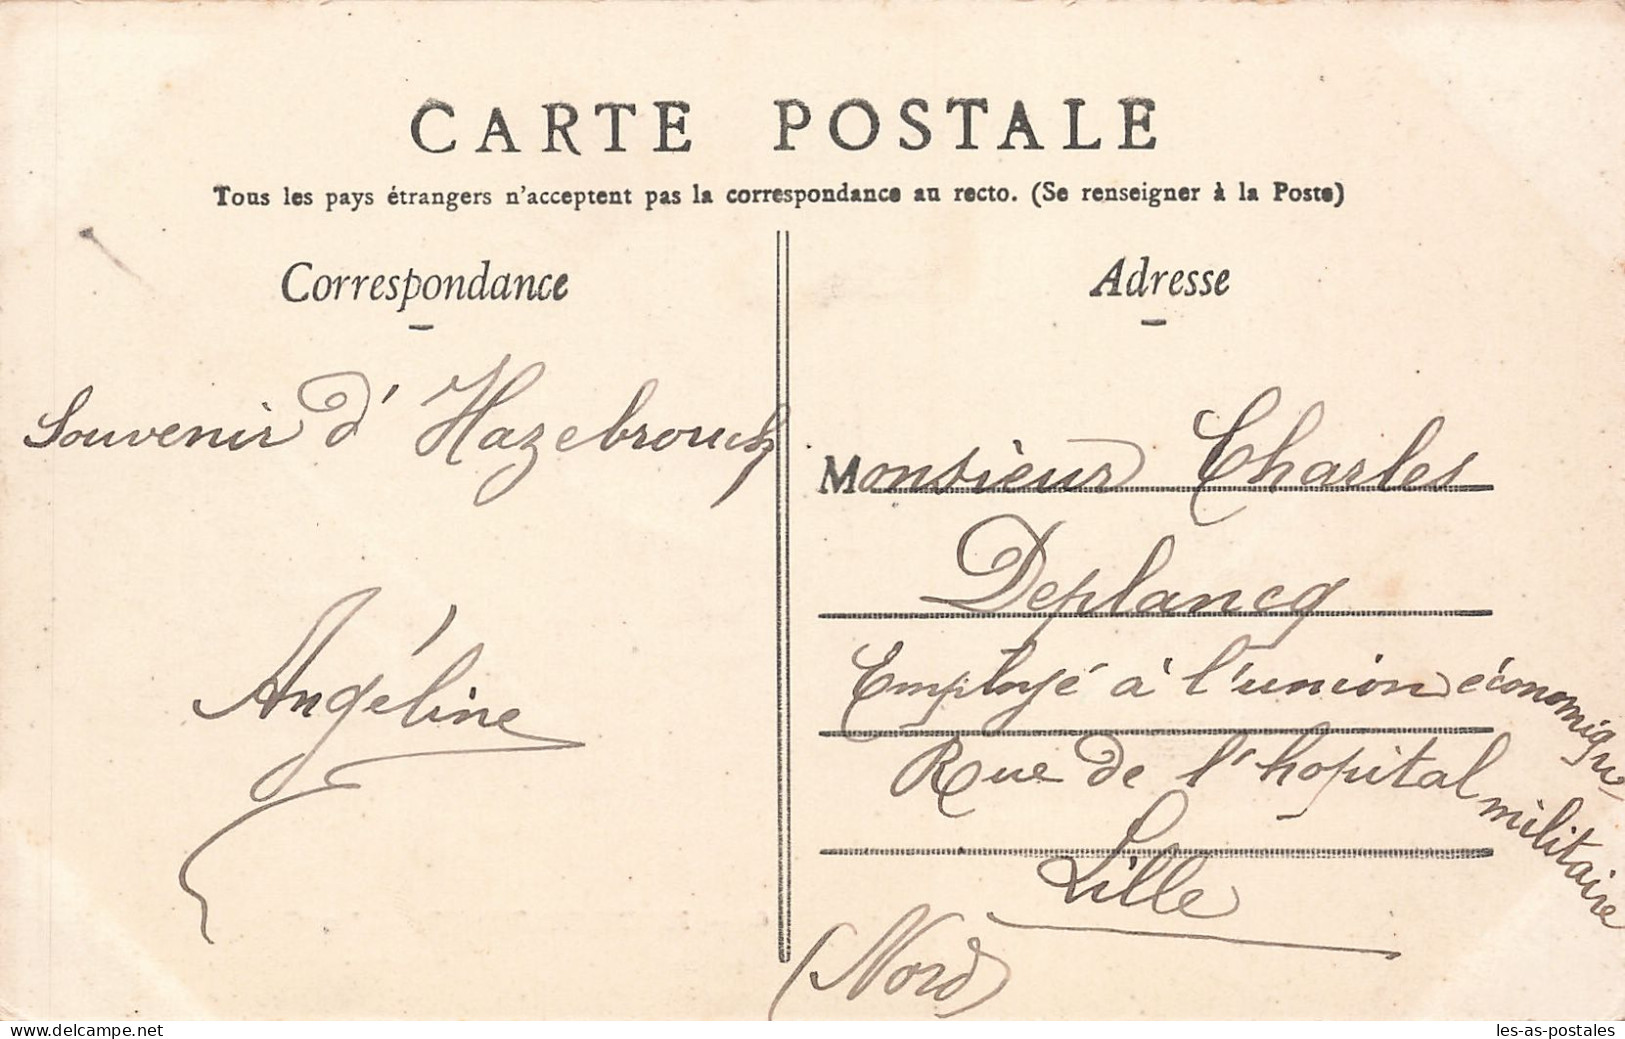 CARTE POSTALE
Tous les pays étrangers n'acceptent pas la correspondance au recto. (Se renseigner à la Poste)
Correspondance
Souvenir d'Hazebrouck
Angéline
Adresse
Monsieur Charles
Deplancq
Employé à l'union économique
Rue de l'hopital militaire
Lille
(Nord)
www.delcampe.net
les-as-postales